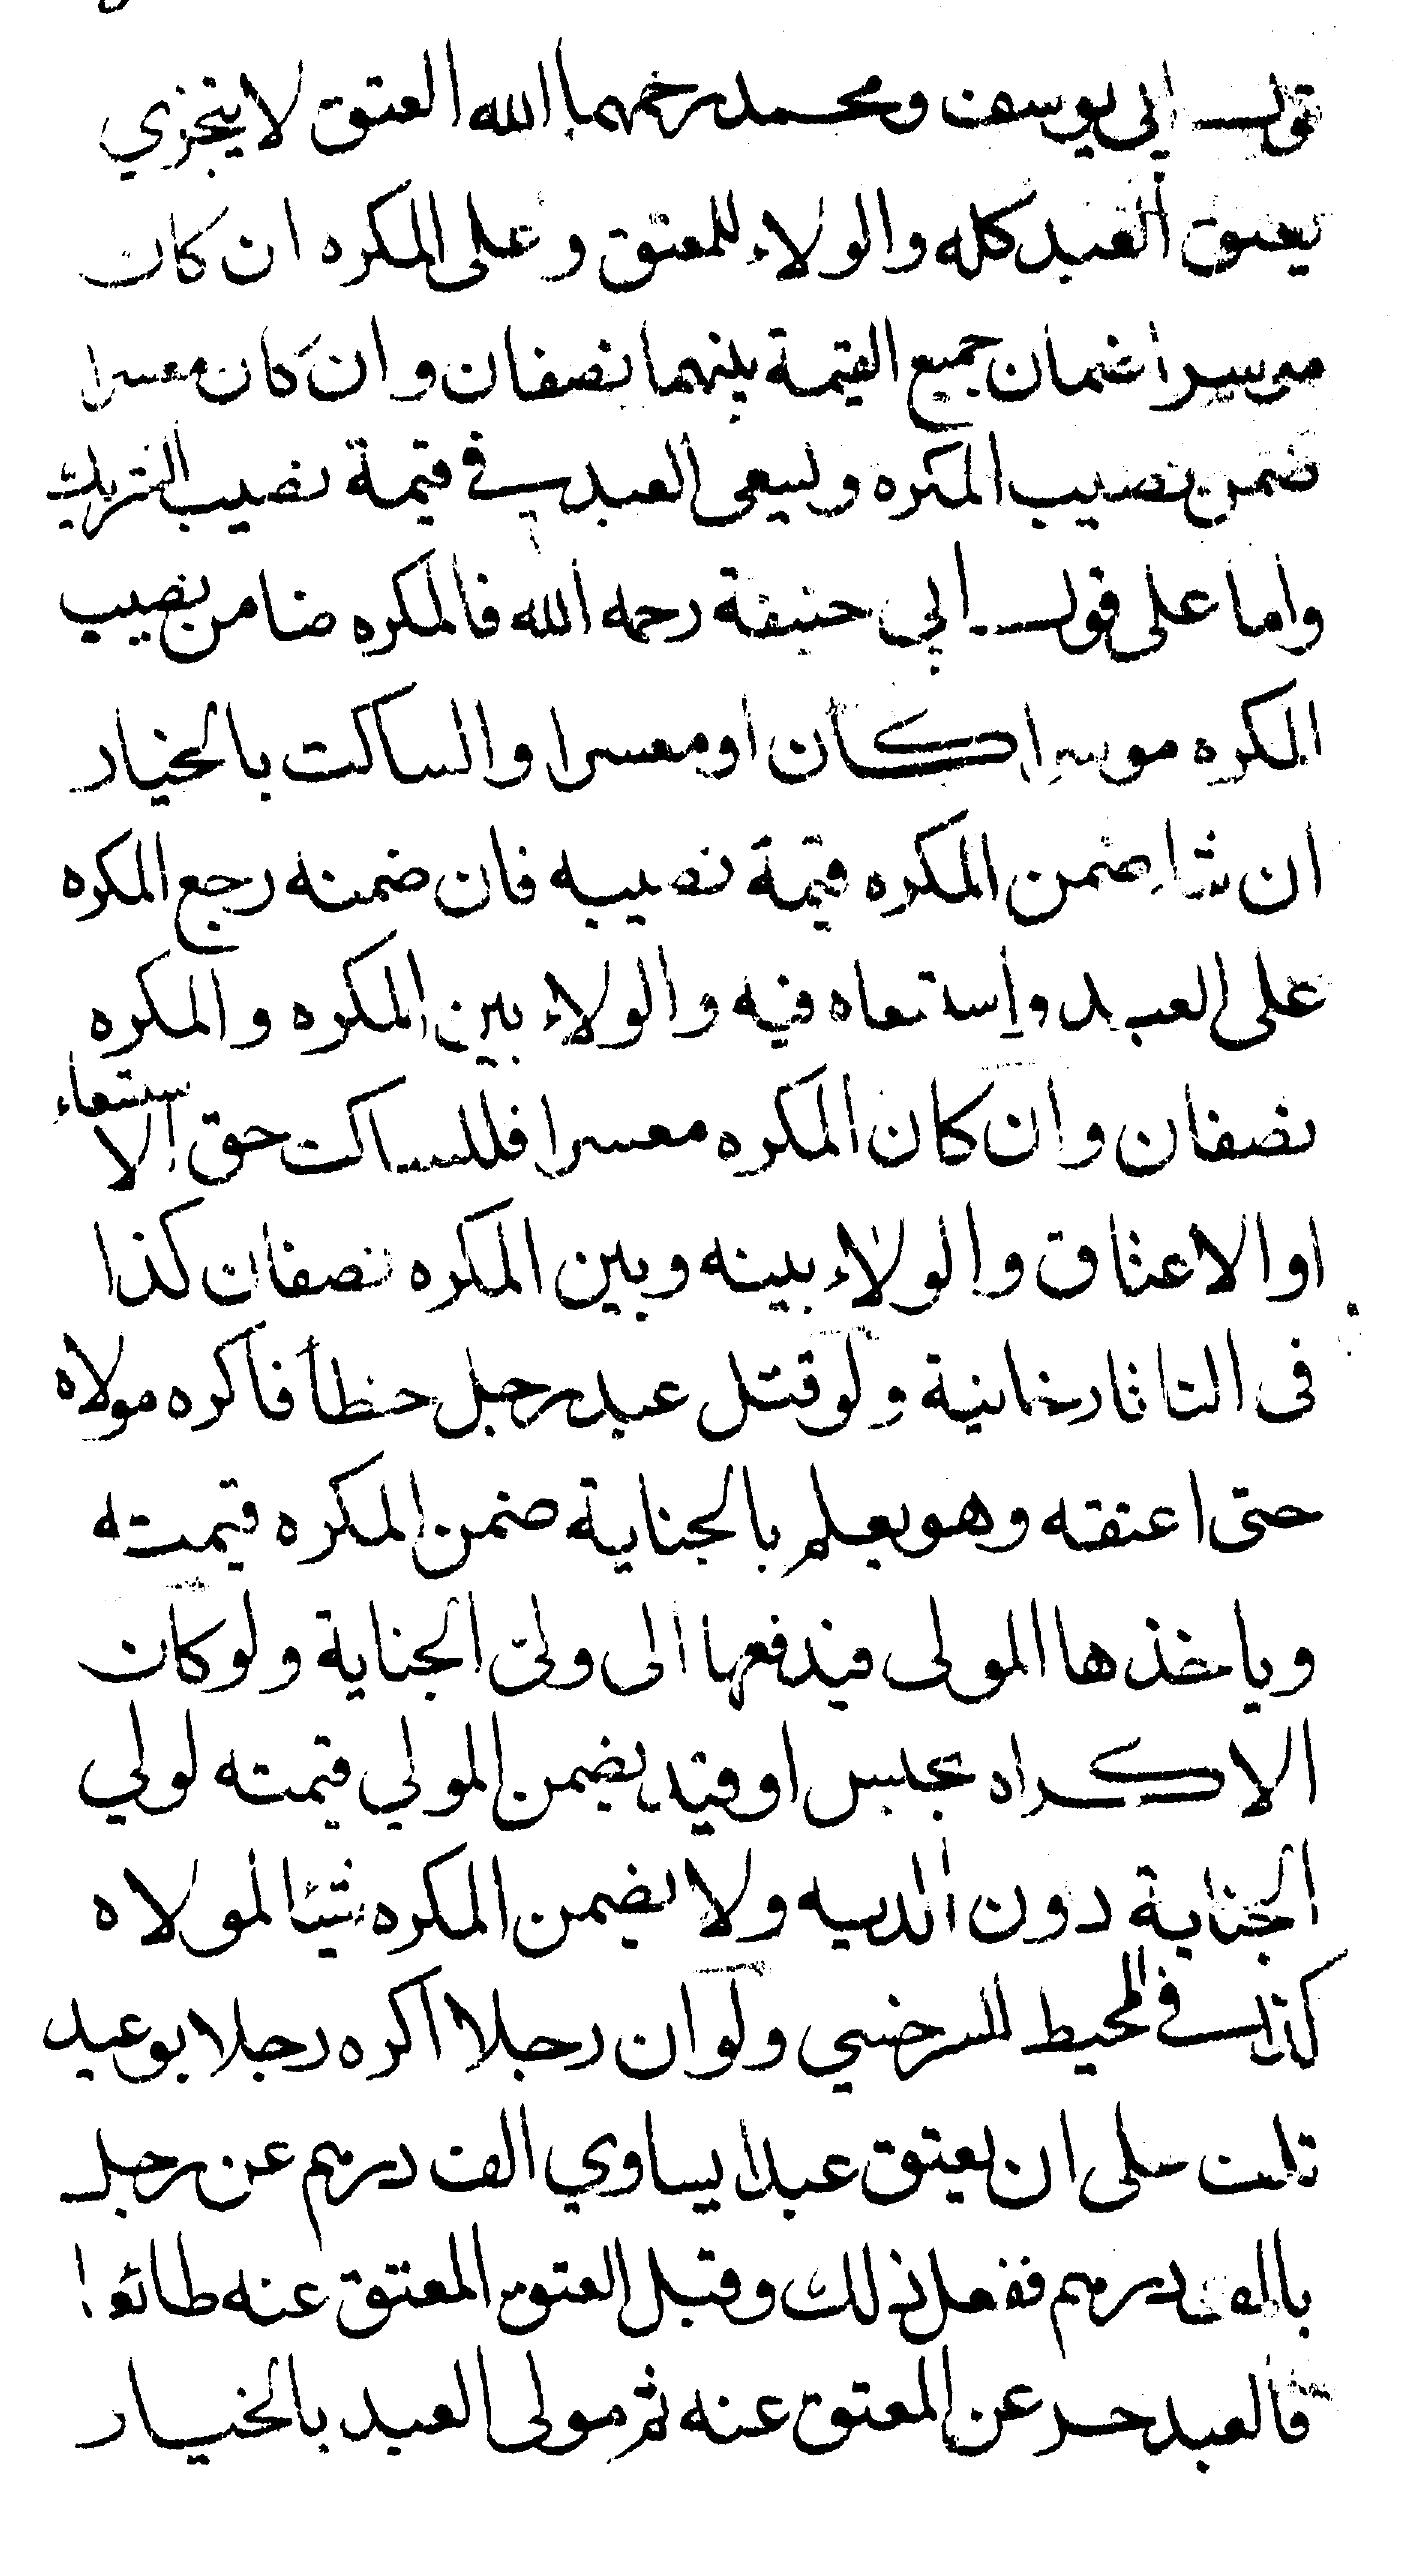 قول ابي يوسف ومحمد رحمهما الله العتق لا يتجزي
يعتق العبد كله والولاء للمعتق وعلى المكره ان كان
موسرا ضمان جميع القيمة بينهما نصفان وان كان معسرا
ضمن نصيب المكره ويسعى العبد في قيمة نصيب الشريك
واما على قول ابي حنيفة رحمه الله فالمكره ضامن نصيب
المكره موسرا كان او معسرا والساكت بالخيار
ان شاء ضمن المكره قيمة نصيبه فان ضمنه رجع المكره
على العبد واستسعاه فيه والولاء بين المكره والمكره
نصفان وان كان المكره معسرا فللساكت حق الاستسعاء
او الاعتاق والولاء بينه وبين المكره نصفان كذا
فى التاتارخانية ولو قتل عبد رجل خطأ فاكره مولاه
حتى اعتقه وهو يعلم بالجناية ضمن المكره قيمته
وياخذها المولى فيدفعها الى ولى الجناية ولو كان
الاكراه بحبس او قيد يضمن المولي قيمته لولي
الجناية دون الديه ولا يضمن المكره شيئا لمولاه
كذا في المحيط للسرخسي ولو ان رجلا اكره رجلا بوعيد
تلف على ان يعتق عبدا يساوي الف درهم عن رجل
بالف درهم ففعل ذلك وقبل العتق المعتق عنه طائعا
فالعبد حر عن المعتق عنه ثم مولى العبد بالخيار